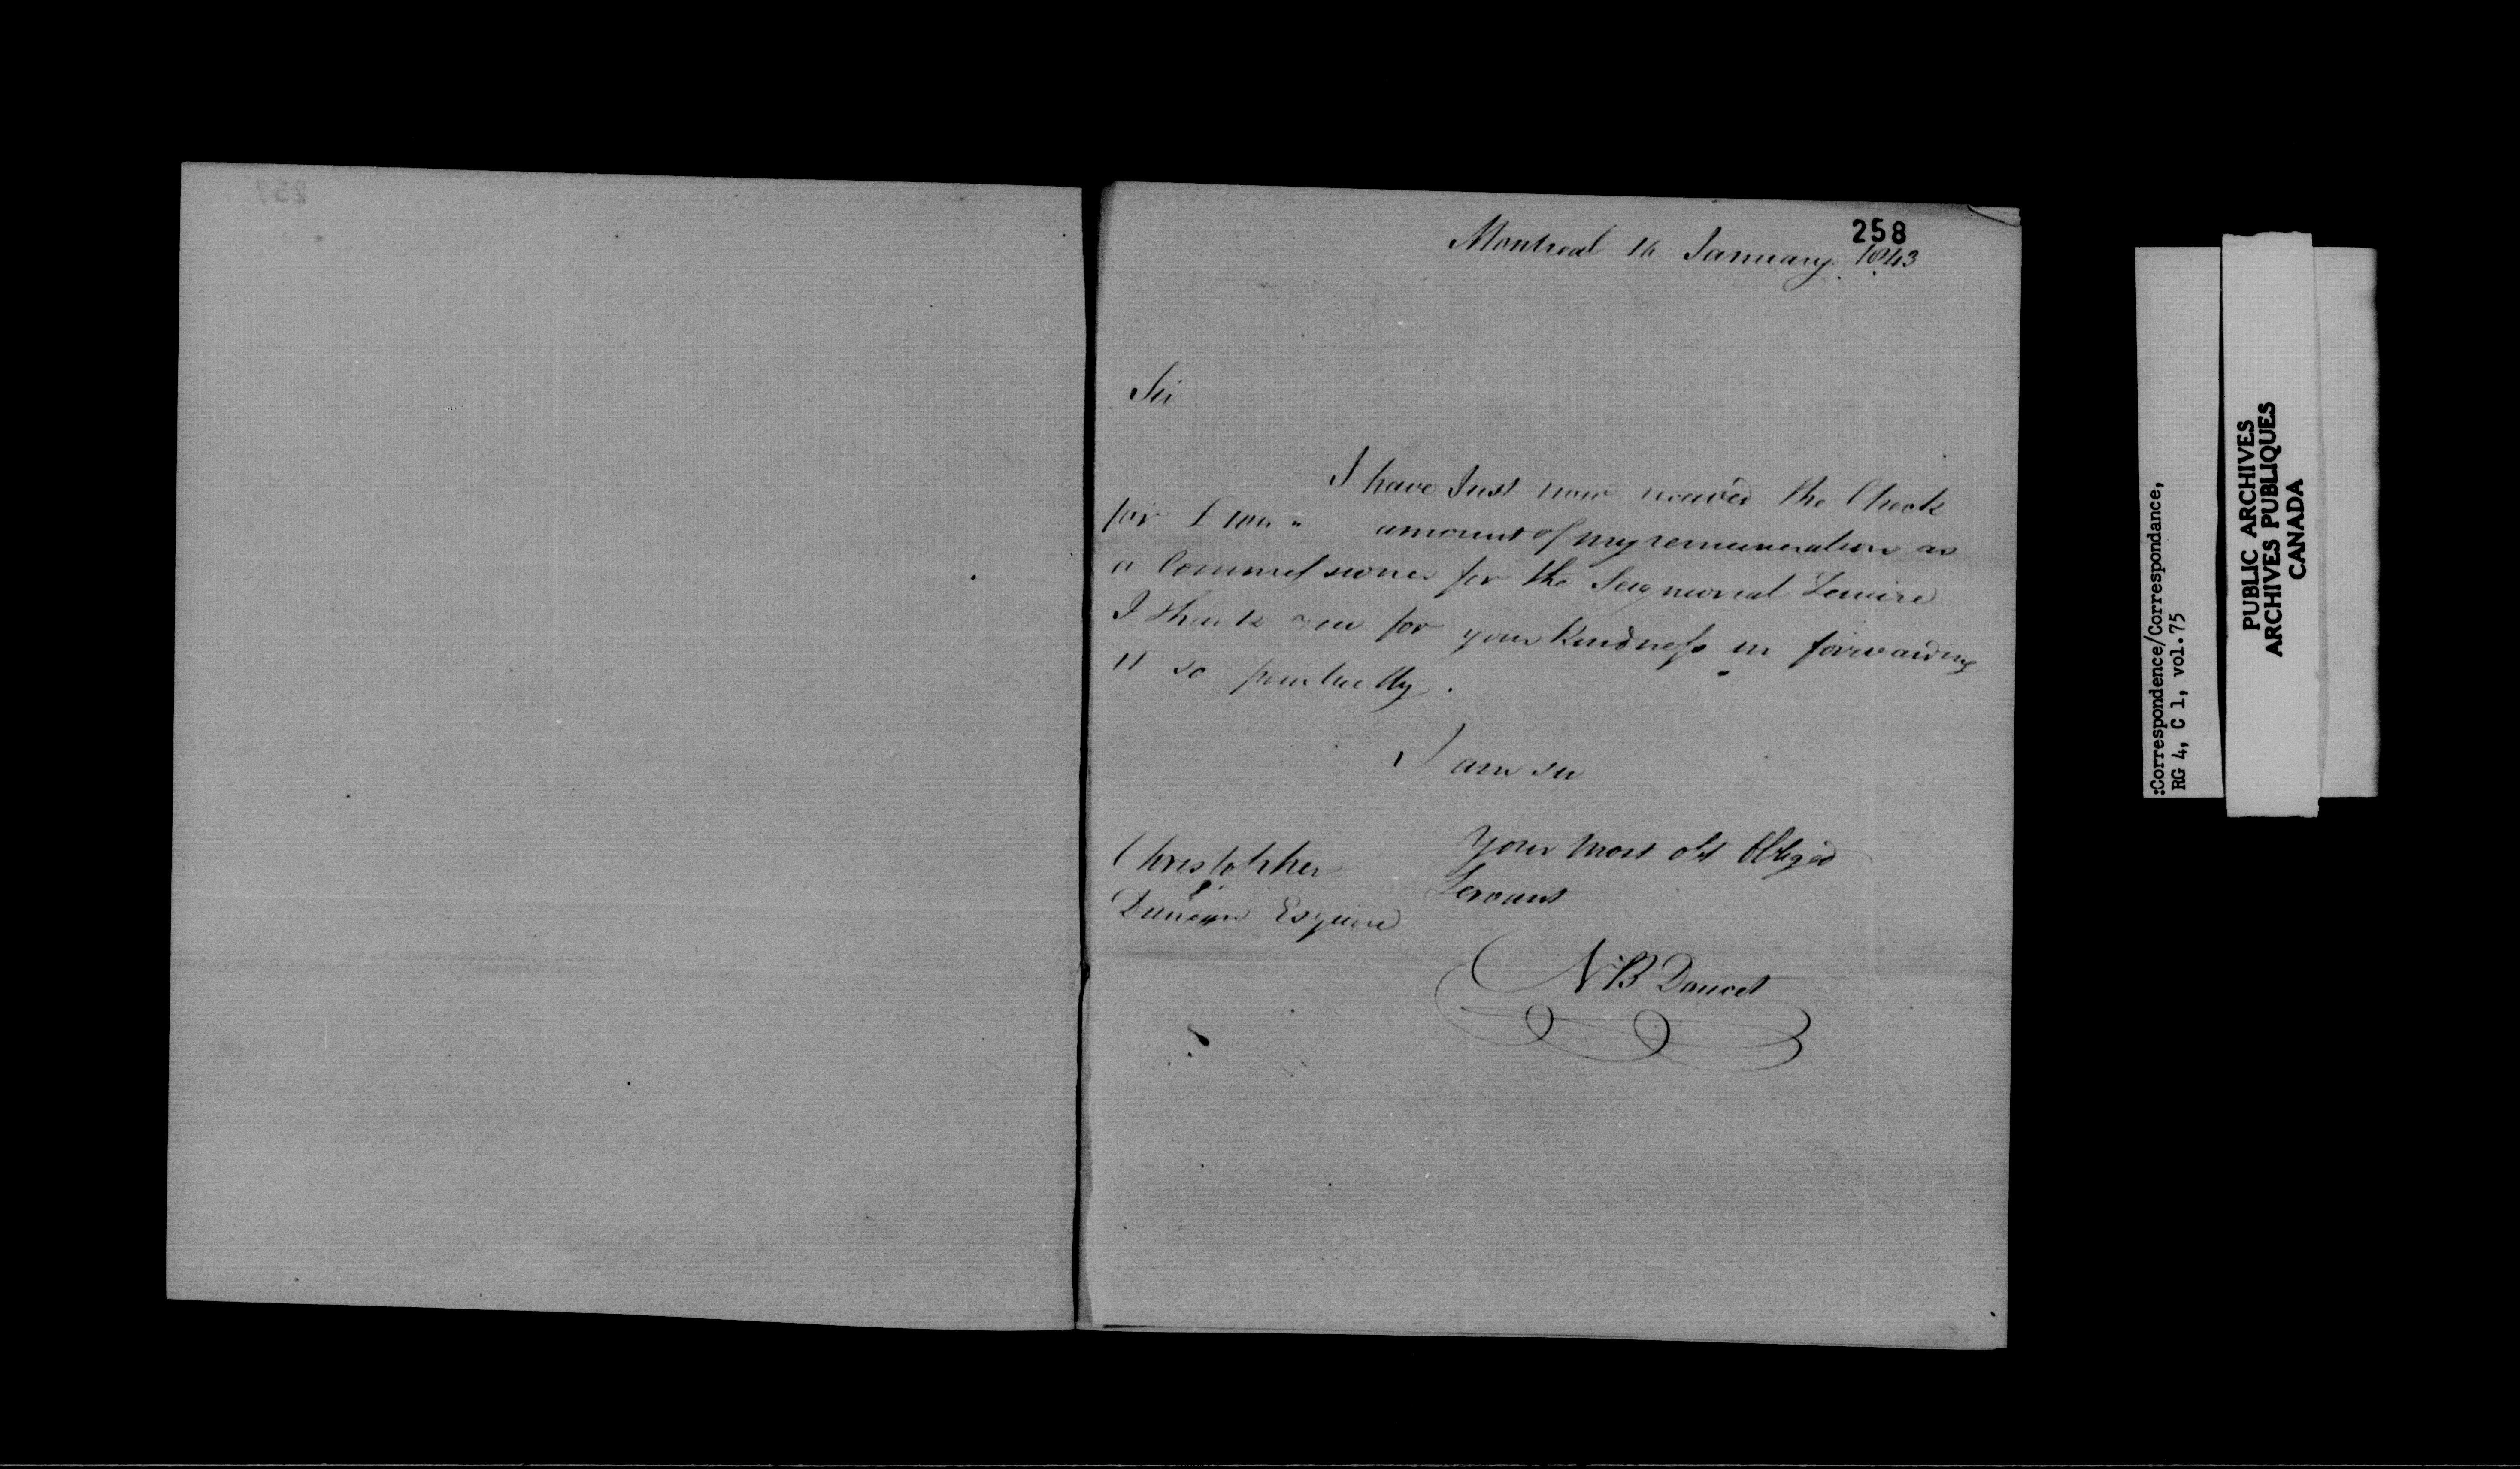 258
Montreal 16 January 1843
Sir
I have Just now received the Check
for £ 100 " amount of my remuneration as
a Commissioner for the Seigneurial Tenure
I thank you for your Kindness in forwarding
it so punctually.
I am sir
Your most obt Obliged
Servant
Christopher
Esquire
N B Doucet
:Correspondence/Correspondance,
RG 4, C 1, vol.75
PUBLIC ARCHIVES
ARCHIVES PUBLIQUES
CANADA